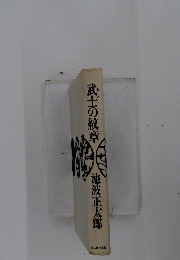 武士の紋章
池波正太郎